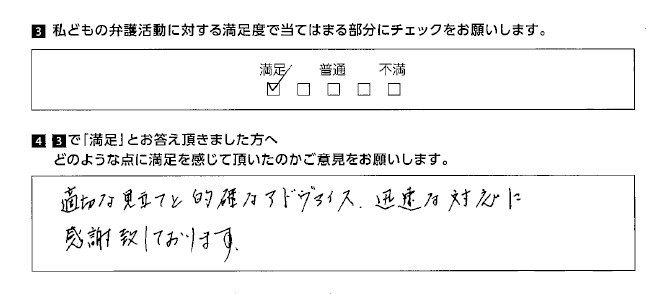 3 私どもの弁護活動に対する満足度で当てはまる部分にチェックをお願いします。
満足 普通 不満
4 3で「満足」とお答え頂きました方へ
どのような点に満足を感じて頂いたのかご意見をお願いします。
適切な見立てと的確なアドヴァイス、迅速な対応に
感謝致しております。